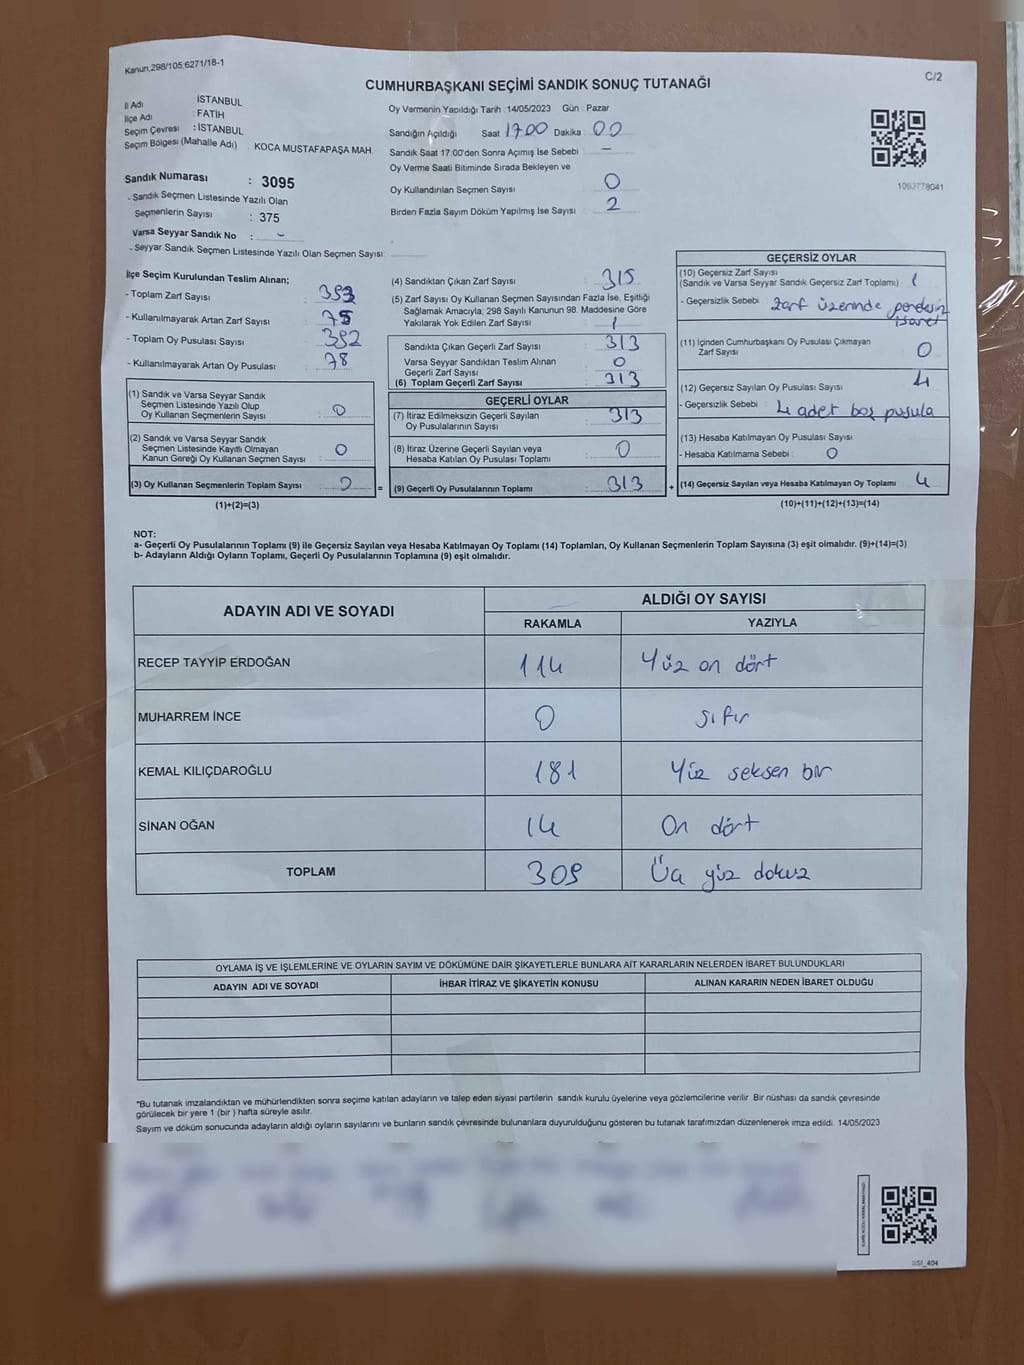 Kanun,298/105,6271/18-1
C/2
CUMHURBAŞKANI SEÇİMİ SANDIK SONUÇ TUTANAĞI
İl Adı : İSTANBUL
İlçe Adı : FATİH
Seçim Çevresi : İSTANBUL
Seçim Bölgesi (Mahalle Adı) : KOCA MUSTAFAPAŞA MAH.
Sandık Numarası : 3095
- Sandık Seçmen Listesinde Yazılı Olan
Seçmenlerin Sayısı : 375
Varsa Seyyar Sandık No : -
- Seyyar Sandık Seçmen Listesinde Yazılı Olan Seçmen Sayısı:
Oy Vermenin Yapıldığı Tarih : 14/05/2023 Gün : Pazar
Sandığın Açıldığı Saat 1700 Dakika : 00
Sandık Saat 17:00'den Sonra Açımış İse Sebebi : -
Oy Verme Saati Bitiminde Sırada Bekleyen ve
Oy Kullandırılan Seçmen Sayısı : 0
Birden Fazla Sayım Döküm Yapılmış İse Sayısı : 2
1093778041
İlçe Seçim Kurulundan Teslim Alınan;
- Toplam Zarf Sayısı : 393
- Kullanılmayarak Artan Zarf Sayısı : 75
- Toplam Oy Pusulası Sayısı : 392
- Kullanılmayarak Artan Oy Pusulası : 78
(1) Sandık ve Varsa Seyyar Sandık
Seçmen Listesinde Yazılı Olup
Oy Kullanan Seçmenlerin Sayısı : 0
(2) Sandık ve Varsa Seyyar Sandık
Seçmen Listesinde Kayıtlı Olmayan
Kanun Gereği Oy Kullanan Seçmen Sayısı : 0
(3) Oy Kullanan Seçmenlerin Toplam Sayısı : 0 =
(1)+(2)=(3)
(4) Sandıktan Çıkan Zarf Sayısı : 315
(5) Zarf Sayısı Oy Kullanan Seçmen Sayısından Fazla İse, Eşitliği
Sağlamak Amacıyla, 298 Sayılı Kanunun 98. Maddesine Göre
Yakılarak Yok Edilen Zarf Sayısı : 1
Sandıkta Çıkan Geçerli Zarf Sayısı : 313
Varsa Seyyar Sandıktan Teslim Alınan
Geçerli Zarf Sayısı : 0
(6) Toplam Geçerli Zarf Sayısı : 313
GEÇERLİ OYLAR
(7) İtiraz Edilmeksizin Geçerli Sayılan
Oy Pusulalarının Sayısı : 313
(8) İtiraz Üzerine Geçerli Sayılan veya
Hesaba Katılan Oy Pusulası Toplamı : 0
(9) Geçerli Oy Pusulalarının Toplamı : 313 +
GEÇERSİZ OYLAR
(10) Geçersiz Zarf Sayısı
(Sandık ve Varsa Seyyar Sandık Geçersiz Zarf Toplamı) : 1
- Geçersizlik Sebebi : Zarf üzerinde
işaret
(11) İçinden Cumhurbaşkanı Oy Pusulası Çıkmayan
Zarf Sayısı : 0
(12) Geçersiz Sayılan Oy Pusulası Sayısı : 4
- Geçersizlik Sebebi : 4 adet boş pusula
(13) Hesaba Katılmayan Oy Pusulası Sayısı
- Hesaba Katılmama Sebebi : 0
(14) Geçersiz Sayılan veya Hesaba Katılmayan Oy Toplamı : 4
(10)+(11)+(12)+(13)=(14)
NOT:
a- Geçerli Oy Pusulalarının Toplamı (9) ile Geçersiz Sayılan veya Hesaba Katılmayan Oy Toplamı (14) Toplamları, Oy Kullanan Seçmenlerin Toplam Sayısına (3) eşit olmalıdır. (9)+(14)=(3)
b- Adayların Aldığı Oyların Toplamı, Geçerli Oy Pusulalarının Toplamına (9) eşit olmalıdır.
ADAYIN ADI VE SOYADI
ALDIĞI OY SAYISI
RAKAMLA YAZIYLA
RECEP TAYYİP ERDOĞAN 114 Yüz on dört
MUHARREM İNCE 0 sıfır
KEMAL KILIÇDAROĞLU 181 Yüz seksen bir
SİNAN OĞAN 14 On dört
TOPLAM 309 Üç yüz dokuz
OYLAMA İŞ VE İŞLEMLERİNE VE OYLARIN SAYIM VE DÖKÜMÜNE DAİR ŞİKAYETLERLE BUNLARA AİT KARARLARIN NELERDEN İBARET BULUNDUKLARI
ADAYIN ADI VE SOYADI İHBAR İTİRAZ VE ŞİKAYETİN KONUSU ALINAN KARARIN NEDEN İBARET OLDUĞU
*Bu tutanak imzalandıktan ve mühürlendikten sonra seçime katılan adayların ve talep eden siyasi partilerin sandık kurulu üyelerine veya gözlemcilerine verilir. Bir nüshası da sandık çevresinde
görülecek bir yere 1 (bir ) hafta süreyle asılır.
Sayım ve döküm sonucunda adayların aldığı oyların sayılarını ve bunların sandık çevresinde bulunanlara duyurulduğunu gösteren bu tutanak tarafımızdan düzenlenerek imza edildi. 14/05/2023
SSI_404